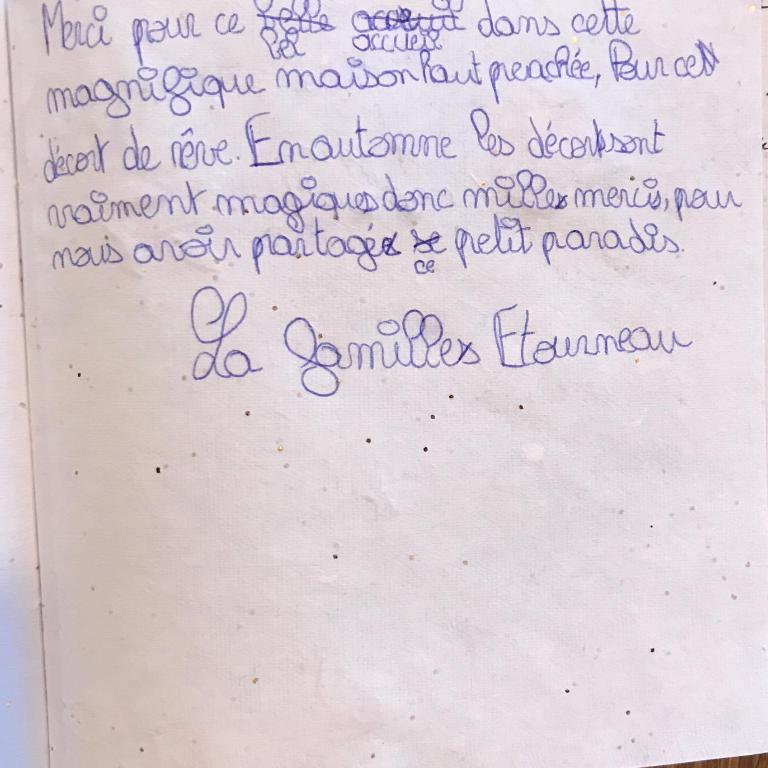 Merci pour ce bel accueil dans cette
magnifique maison haut preachée, Pour cet
décort de rêve. En automne les décort sont
vraiment magiques donc milles mercis, pour
nous avoir partagé ce petit paradis.
La familles Etourneau